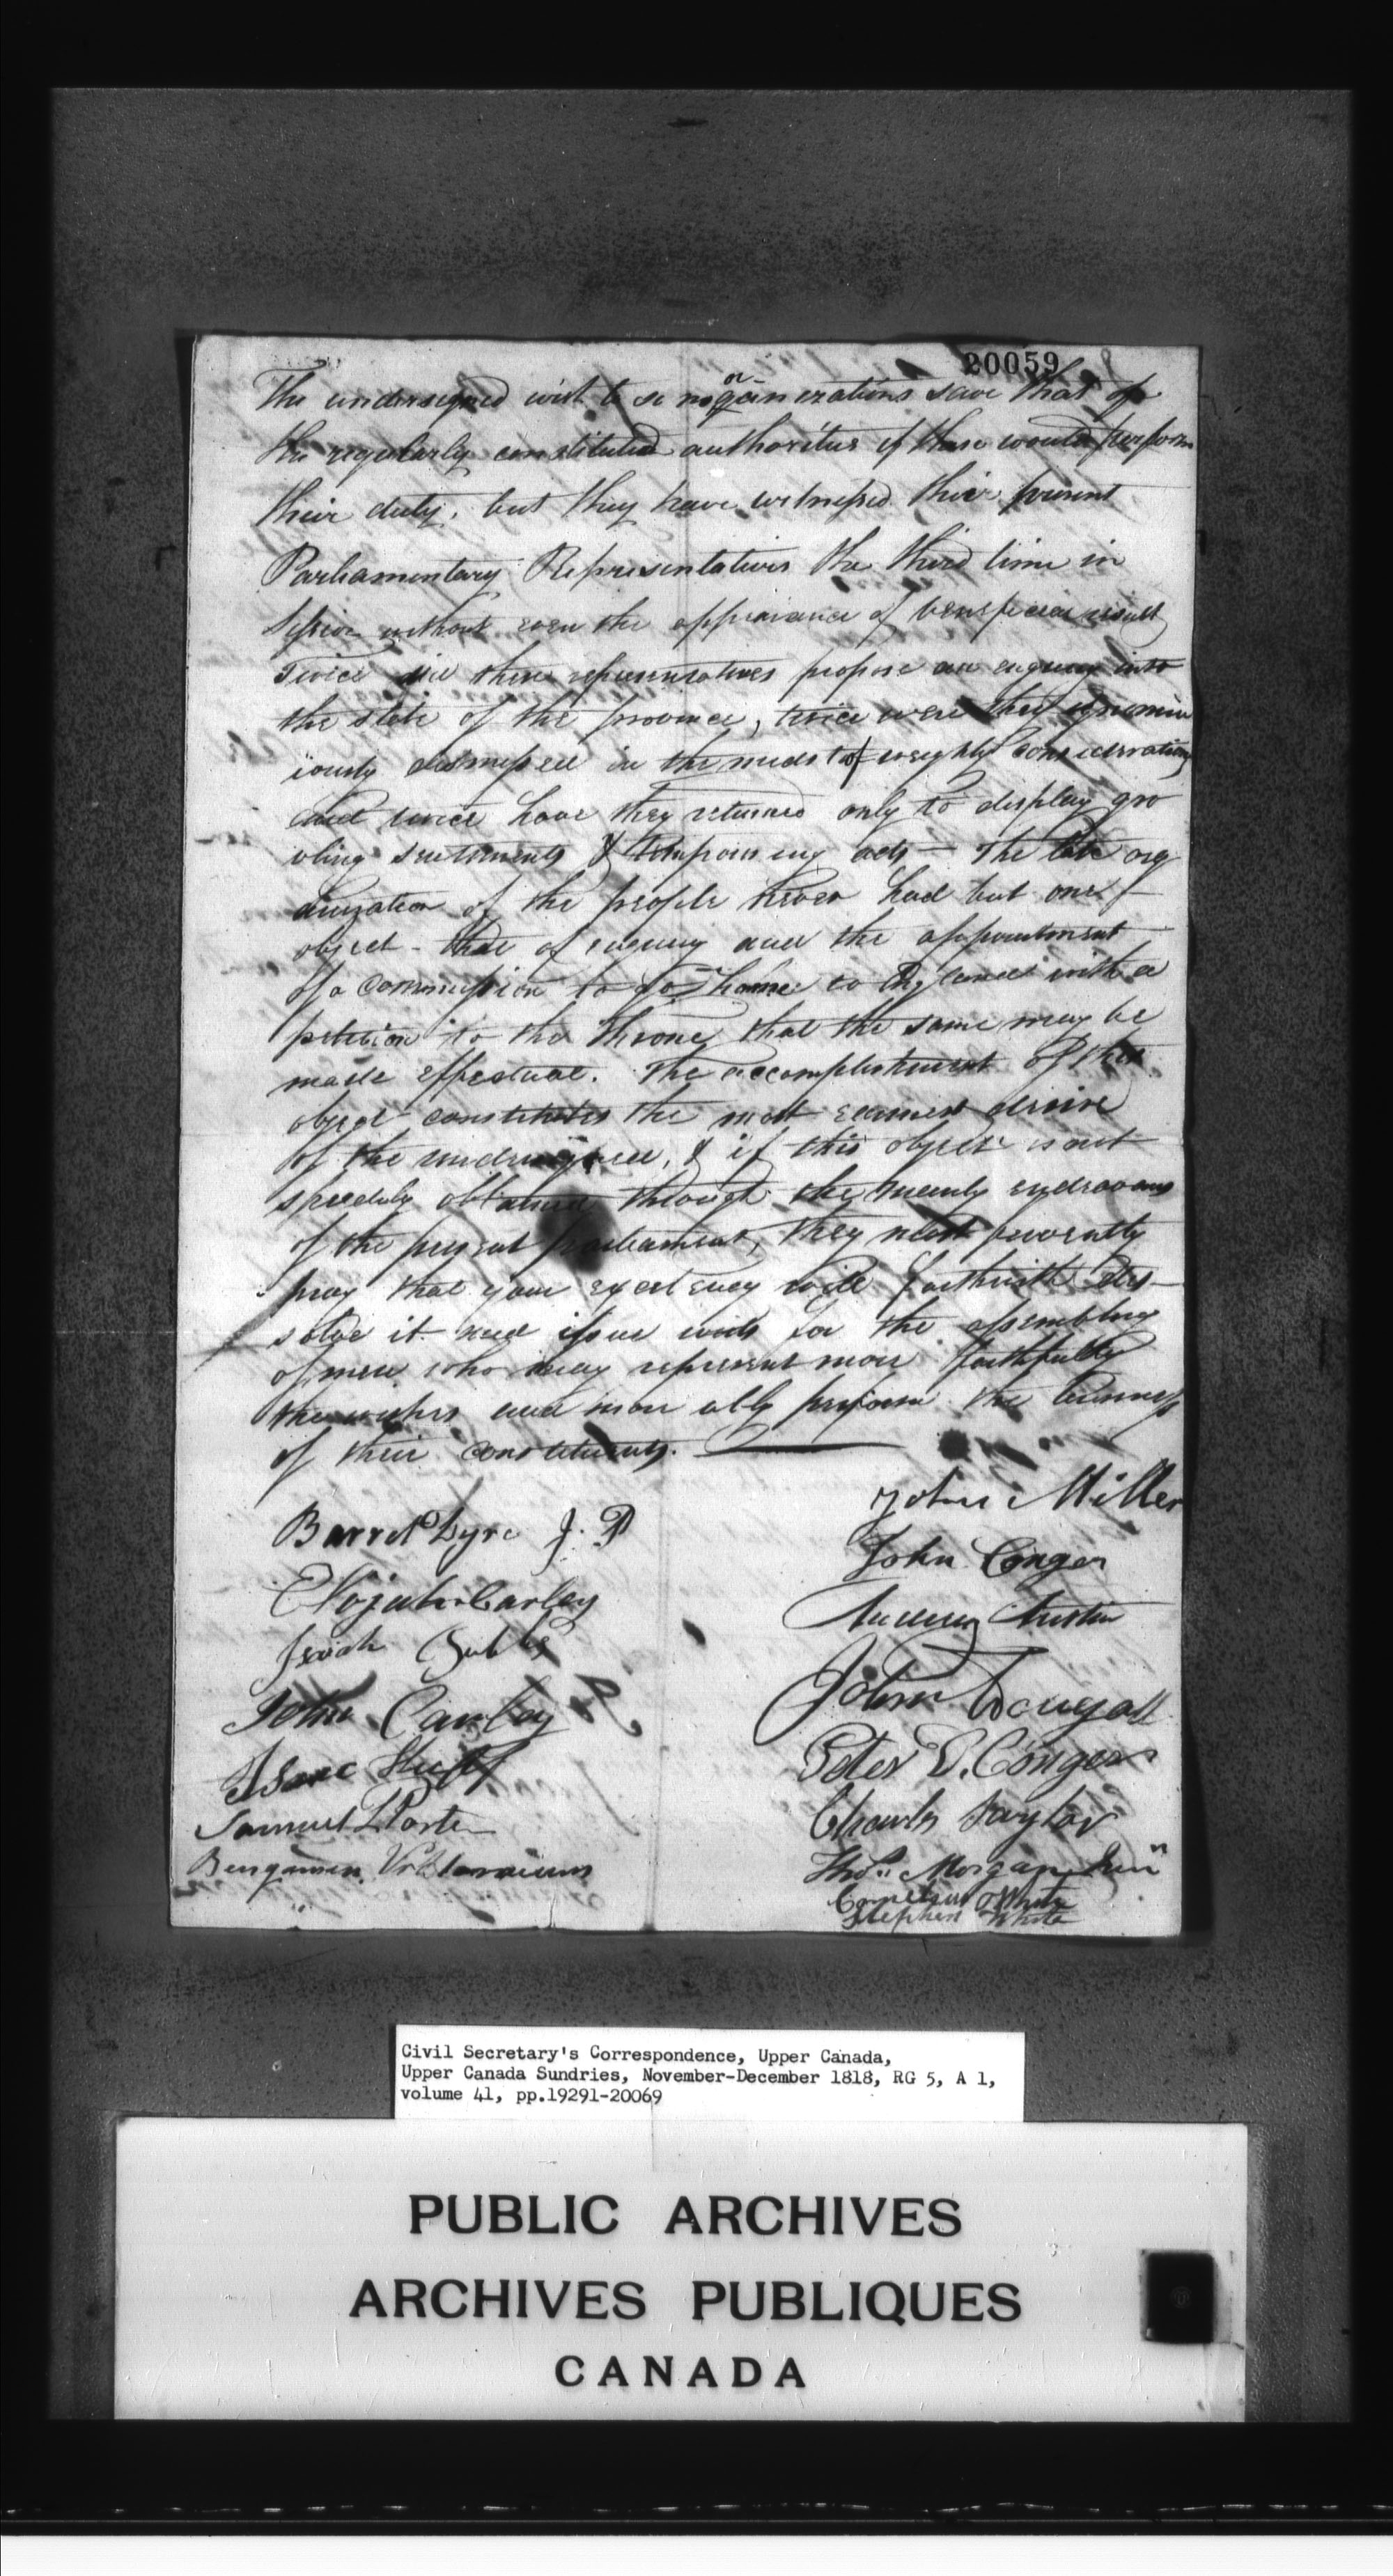 20059
The undersigned wish to se no organizations save that of
the regularly constituted authorities if these would perform
their duty, but they have witnessed their present
Parliamentary Representatives the third time in
Session without even the appearance of beneficial result
Twice did these representatives propose an enquiry into
the state of the province, twice were they ignomin
iously dismissed in the midst of weighty considerations
and twice have they returned only to display gro
vling sentiments & temporising acts — The late org
anization of the people never had but one
object - that of enquiry and the appointment
of a commission to go home to England with a
petition to the throne that the same may be
made effectual. The accomplishment of this
object constitutes the most earnest desire
of the undersigned, & if this object is not
speedily obtained through the manly endeavours
of the present parliament, they most fervently
pray that your excelency will forthwith dis-
solve it and issue writs for the assembling
of men who may represent more faithfully
the wishes and more ably perform the business
of their constituents.
John Miller
Barret Dyre J. P
John Conger
Elijah Carley
Austin
Isaiah Tubbs
John Dougall
John Canley
Peter D. Conger
Isaac Huff
Charls Taylor
Samuel L Porter
Thos. Morgan Junr
Benjamin
Cornelius White
Stephen White
Civil Secretary's Correspondence, Upper Canada,
Upper Canada Sundries, November-December 1818, RG 5, A 1,
volume 41, pp.19291-20069
PUBLIC ARCHIVES
ARCHIVES PUBLIQUES
CANADA